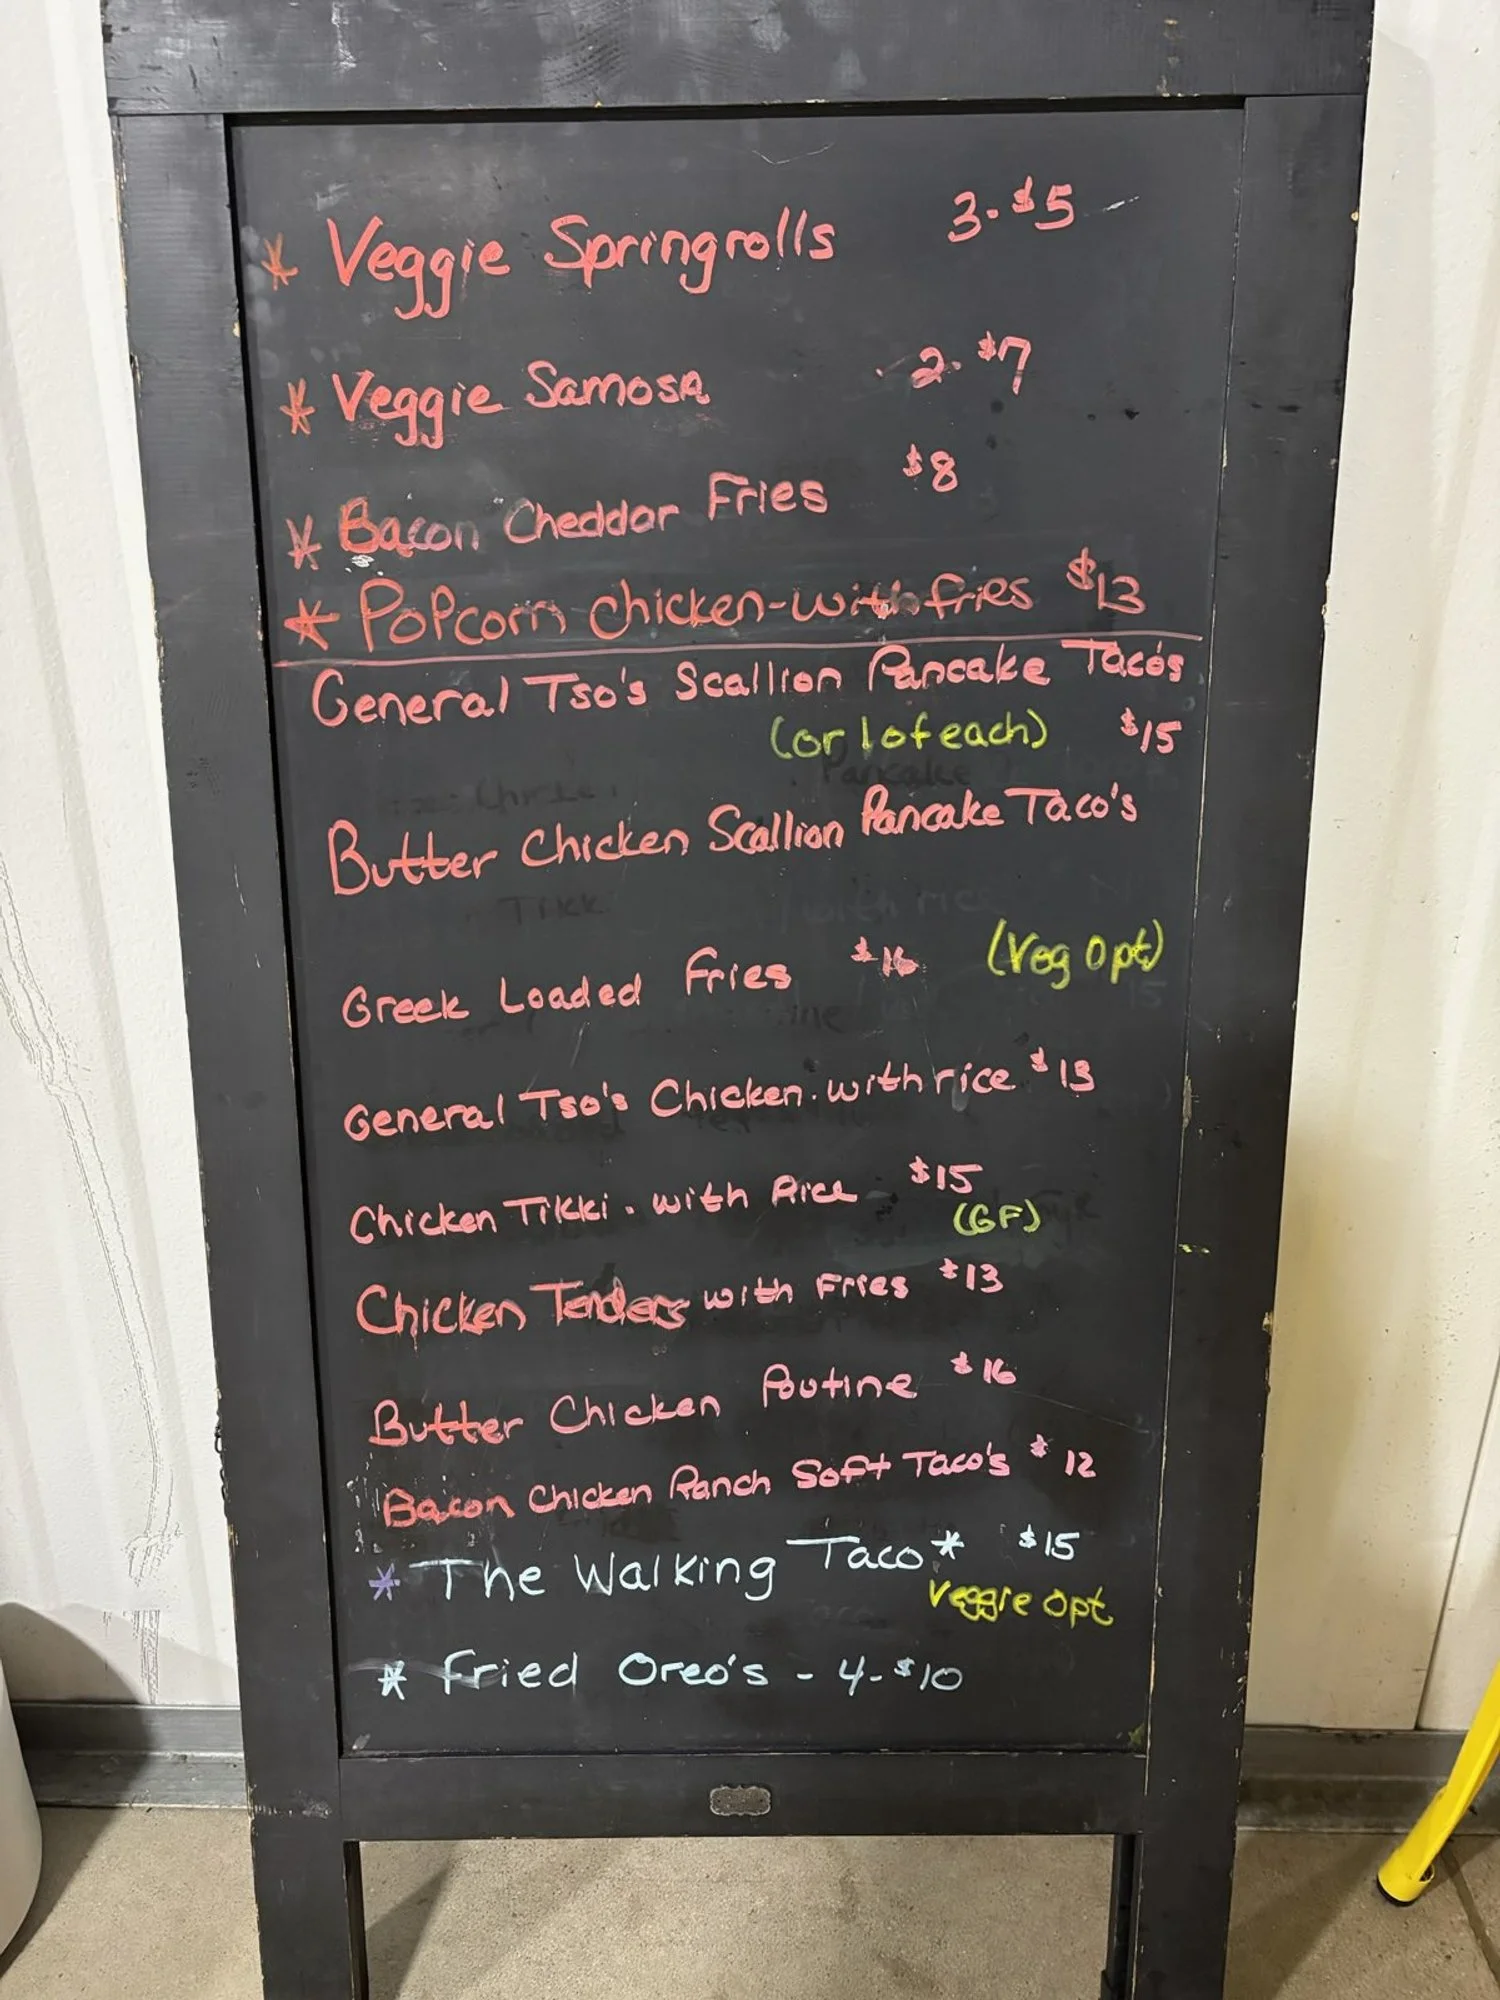 * Veggie Springrolls 3-$5
* Veggie Samosa .2-$7
* Bacon Cheddar Fries $8
* Popcorn Chicken-with fries $13
General Tso's Scallion Pancake Taco's
(or 1 of each) $15
Pancake
Butter Chicken Scallion Pancake Taco's
with rice
Greek Loaded Fries $16 (Veg Opt)
General Tso's Chicken. with rice $13
Chicken Tikki. with Rice $15
(GF)
Chicken Tenders with Fries $13
Butter Chicken Poutine $16
Bacon Chicken Ranch Soft Taco's $12
* The Walking Taco * $15
Veggie Opt
* Fried Oreo's - 4-$10